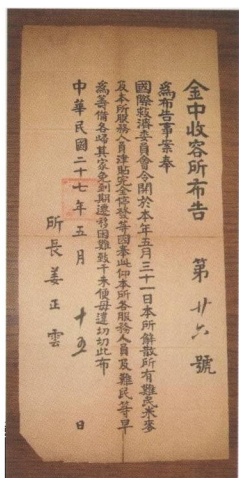 金中收容所布告 第廿六號
為布告事案奉
國際救濟委員會令開於本年五月三十一日本所解散所有難民米麥
及本所服務人員津貼完全停發等因奉此仰本所各服務人員及難民等早
為籌備各歸其家免到期遷移困難致干未便毋違切切此布
中華民國二十七年五月十五日
所長姜正雲